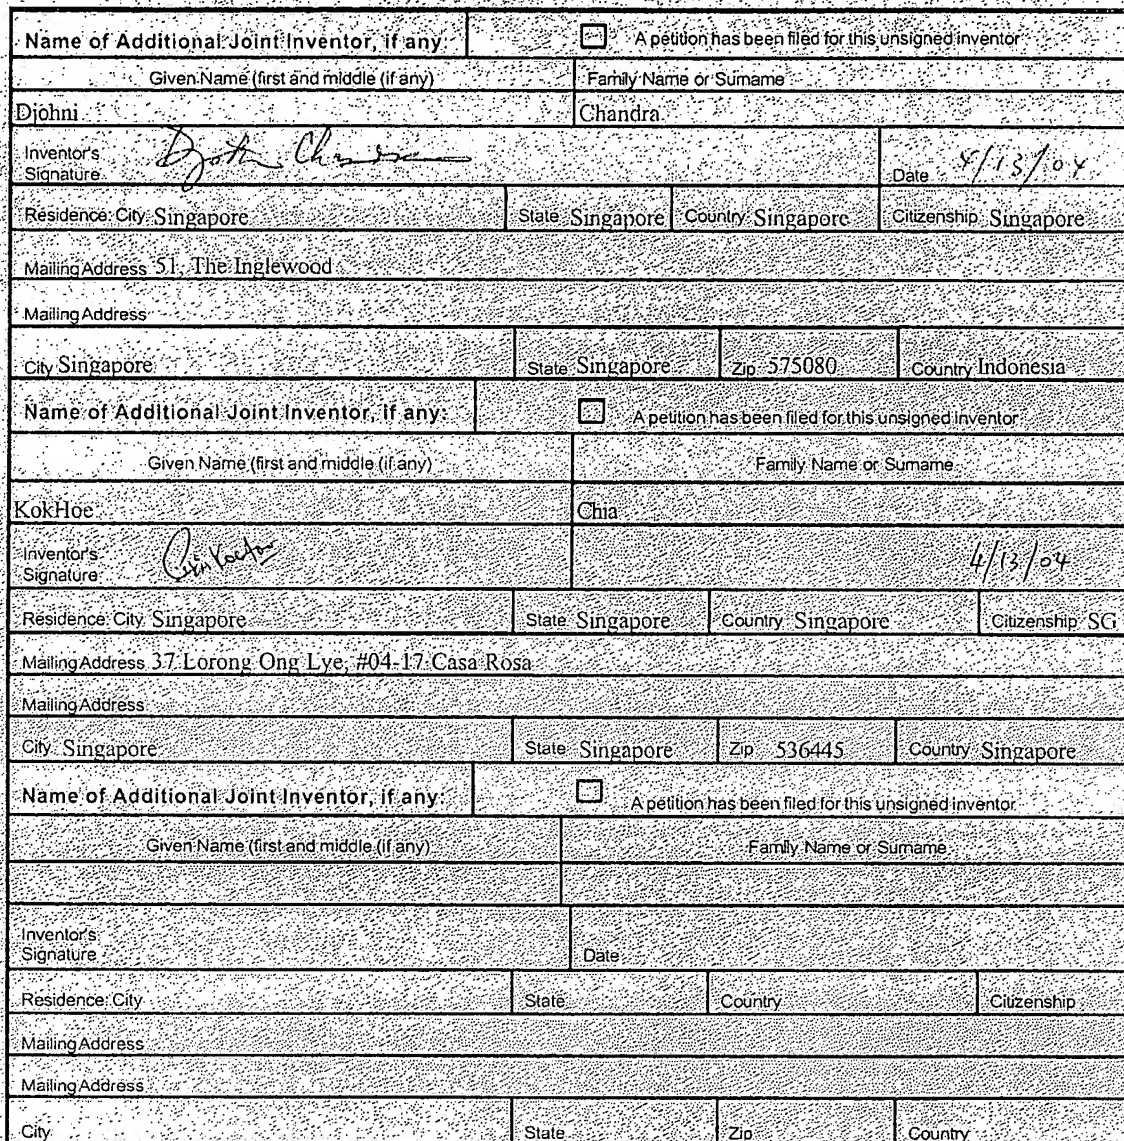 Name of Additional Joint Inventor, if any: A petition has been filed for this unsigned inventor
Given Name (first and middle (if any) Family Name or Surname
Djohni Chandra
Inventor's Signature Djohni Chandra Date 4/13/04
Residence: City Singapore State Singapore Country Singapore Citizenship Singapore
Mailing Address 51, The Inglewood
Mailing Address
City Singapore State Singapore Zip 575080 Country Indonesia
Name of Additional Joint Inventor, if any: A petition has been filed for this unsigned inventor
Given Name (first and middle (if any) Family Name or Surname
KokHoe Chia
Inventor's Signature 4/13/04
Residence: City Singapore State Singapore Country Singapore Citizenship SG
Mailing Address 37 Lorong Ong Lye, #04-17 Casa Rosa
Mailing Address
City Singapore State Singapore Zip 536445 Country Singapore
Name of Additional Joint Inventor, if any: A petition has been filed for this unsigned inventor
Given Name (first and middle (if any) Family Name or Surname
Inventor's Signature Date
Residence: City State Country Citizenship
Mailing Address
Mailing Address
City State Zip Country